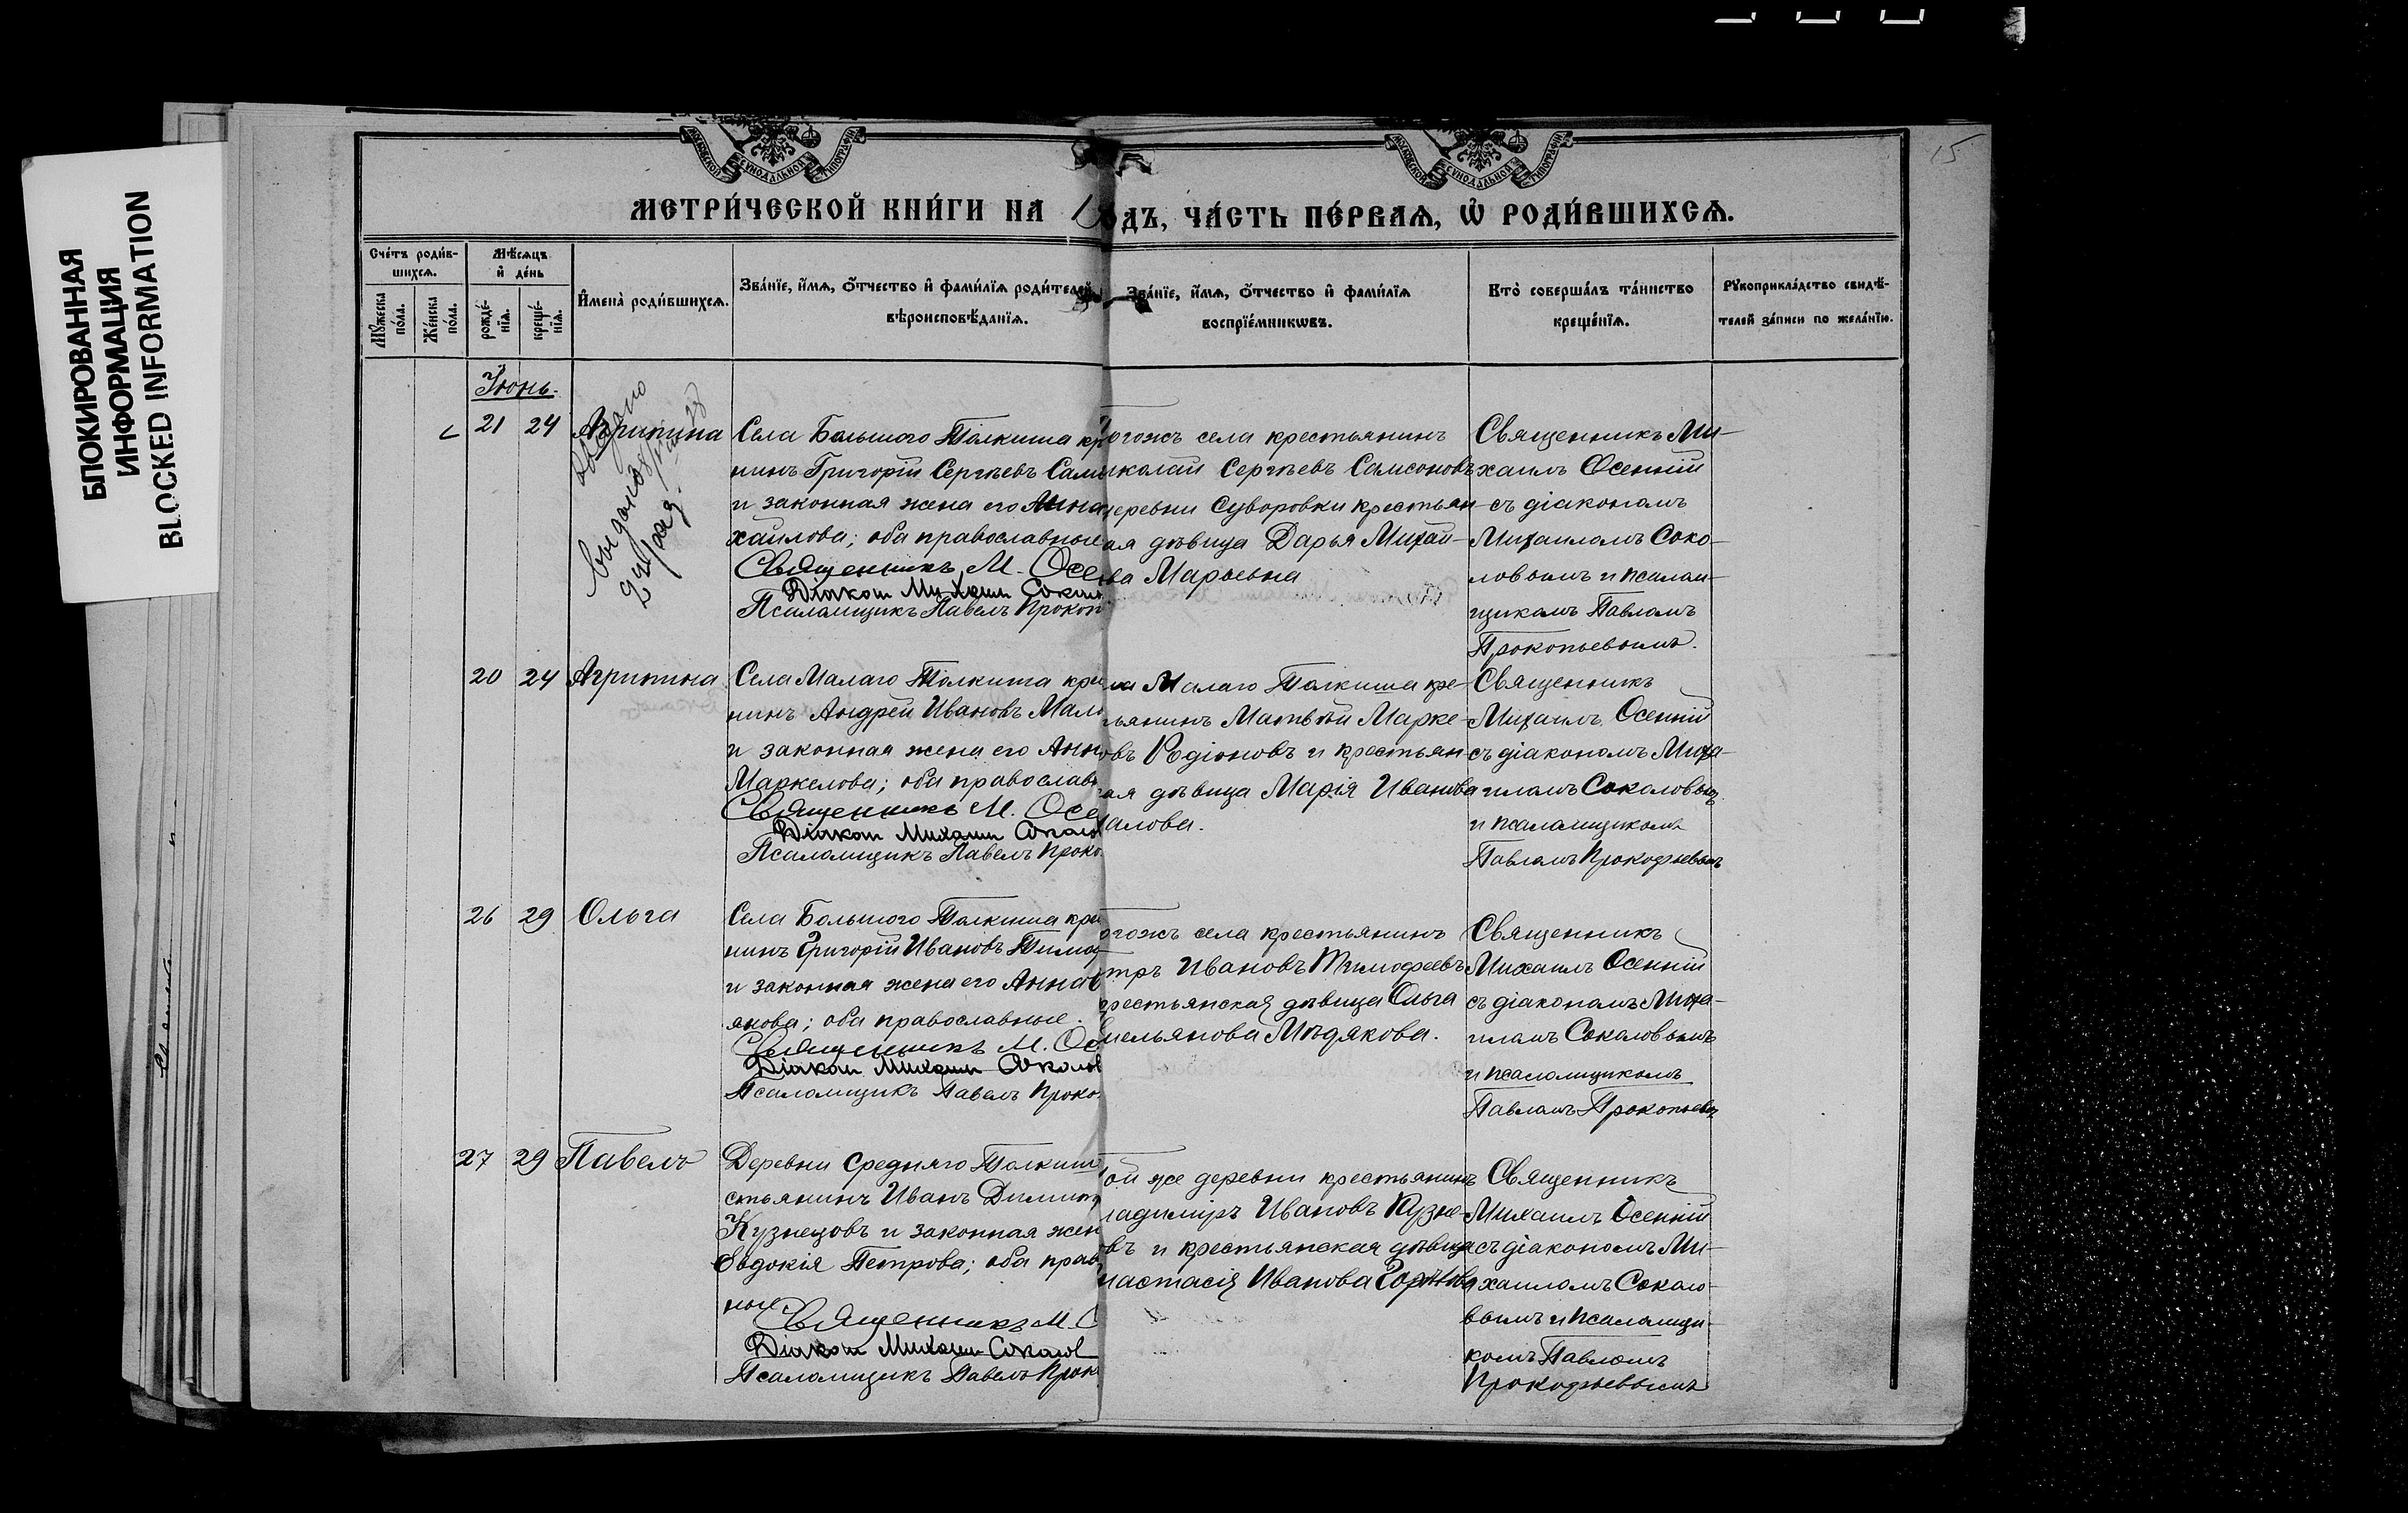 БЛОКИРОВАННАЯ
ИНФОРМАЦИЯ
BLOCKED INFORMATION
15
МОСКОВСКОЙ СѴНОДАЛЬНОЙ ТИПОГРАФІИ
МОСКОВСКОЙ СѴНОДАЛЬНОЙ ТИПОГРАФІИ
МЕТРИ́ЧЕСКОЙ КНИ́ГИ НА
ОДЪ, ЧА́СТЬ ПЕ́РВАѦ, Ѡ҆ РОДИ́ВШИХСѦ.
Сче́тъ роди́в-
шихсѧ.
Мꙋ́жеска по́ла.
Же́нска по́ла.
Мѣ́сѧцъ
и҆ де́нь
рожде́-
нїѧ.
креще́-
нїѧ.
И҆мена̀ роди́вшихсѧ.
Зва́нїе, и҆́мѧ, ѻ҆́тчество и҆ фами́лїѧ роди́телей
вѣроисповѣ́данїѧ.
Зва́нїе, и҆́мѧ, ѻ҆́тчество и҆ фами́лїѧ
воспрїе́мникѡвъ.
Кто̀ соверша́лъ та́инство
креще́нїѧ.
Рꙋкоприкла́дство свидѣ́-
телей за́писи по жела́нїю.
Іюнь.
21 24 Агрипина
Села Большого Толкиша кр
нинъ Григорій Сергѣевъ Самс
и законная жена его Анна
хаилова; оба православные
Священникъ М. Осе
Діакон Михаил Сокол
Псаломщикъ Павелъ Прокоп
огожъ села крестьянинъ
иколай Сергѣевъ Самсоновъ
деревни Суворовки крестьян-
ая дѣвица Дарья Михай-
ва Марьевна
Священникъ Ми-
хаилъ Осенній
съ діакономъ
Михаиломъ Соко-
ловымъ и псалом-
щикомъ Павломъ
Прокопьевымъ.
20 24 Агрипина
Села Малаго Толкиша кре
нинъ Андрей Ивановъ Мало
и законная жена его Анн
Маркелова; оба православ
Священникъ М. Осе
Діакон Михаил Соколов
Псаломщикъ Павелъ Проко
ла Малаго Толкиша кре-
тьянинъ Матвѣй Марке-
овъ Родіоновъ и крестьян-
кая дѣвица Марія Иванова
алова.
Священникъ
Михаилъ Осенній
съ діакономъ Миха-
иломъ Соколовым
и псаломщикомъ
Павломъ Прокофьевымъ
26 29 Ольга
Села Большого Толкиша кре
нинъ Григорій Ивановъ Тимоф
и законная жена его Анна
янова; оба православные.
Священникъ М. Ос
Діакон Михаил Соколов
Псаломщикъ Павелъ Проко
огожъ села крестьянинъ
етръ Ивановъ Тимофеевъ
крестьянская дѣвица Ольга
мельянова Мѣдякова.
Священникъ
Михаилъ Осенній
съ діакономъ Миха-
иломъ Соколовымъ
и псаломщикомъ
Павломъ Прокопьевы
27 29 Павелъ
Деревни Средняго Толкиш
стьянинъ Иванъ Димитр
Кузнецовъ и законная жен
Евдокія Петрова; оба прав
ные.
Священникъ М. О
Діакон Михаил Соколов
Псаломщикъ Павелъ Проко
ой же деревни крестьянинъ
ладиміръ Ивановъ Кузне-
овъ и крестьянская дѣвица
настасія Иванова
Священникъ
Михаилъ Осенній
съ діакономъ Ми-
хаиломъ Соколо-
вымъ и псаломщи-
комъ Павломъ
Прокофьевымъ